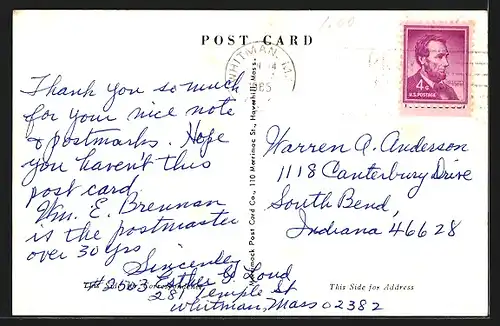 1.00
POST CARD
WHITMAN, M
14
65
4¢
U.S. POSTAGE
Thank you so much
for your nice note
& postmarks. Hope
you haven't this
post card.
Wm. E. Brennan
is the postmaster
over 30 yrs
Sincerely
#2503 Esther G. Loud
281 Temple St
Whitman, Mass 02382
Post Card Co., 110 Merrimac St., Haverhill, Mass.
Warren A. Anderson
1118 Canterbury Drive
South Bend,
Indiana 46628
This Side for Address